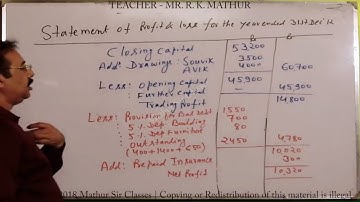 TEACHER - MR. R. K. MATHUR
Statement of Profit & loss for the year ended 31st Dec 12
Rs Rs
Closing Capital 53,200
Add: Drawings: Souvik 3500
Avik 4000 60,700
Less: Opening Capital 45,900
Further Capital — 45,900
Trading Profit 14800
Less: Provision for Bad Debt 1550
5% Dep Building 700
5% Dep Furniture 80
Outstanding
(400+1400+650) 2450 4,780
10,020
Add: Prepaid Insurance 300
Net Profit 10,320
2018 Mathur Sir Classes | Copying or Redistribution of this material is illegal